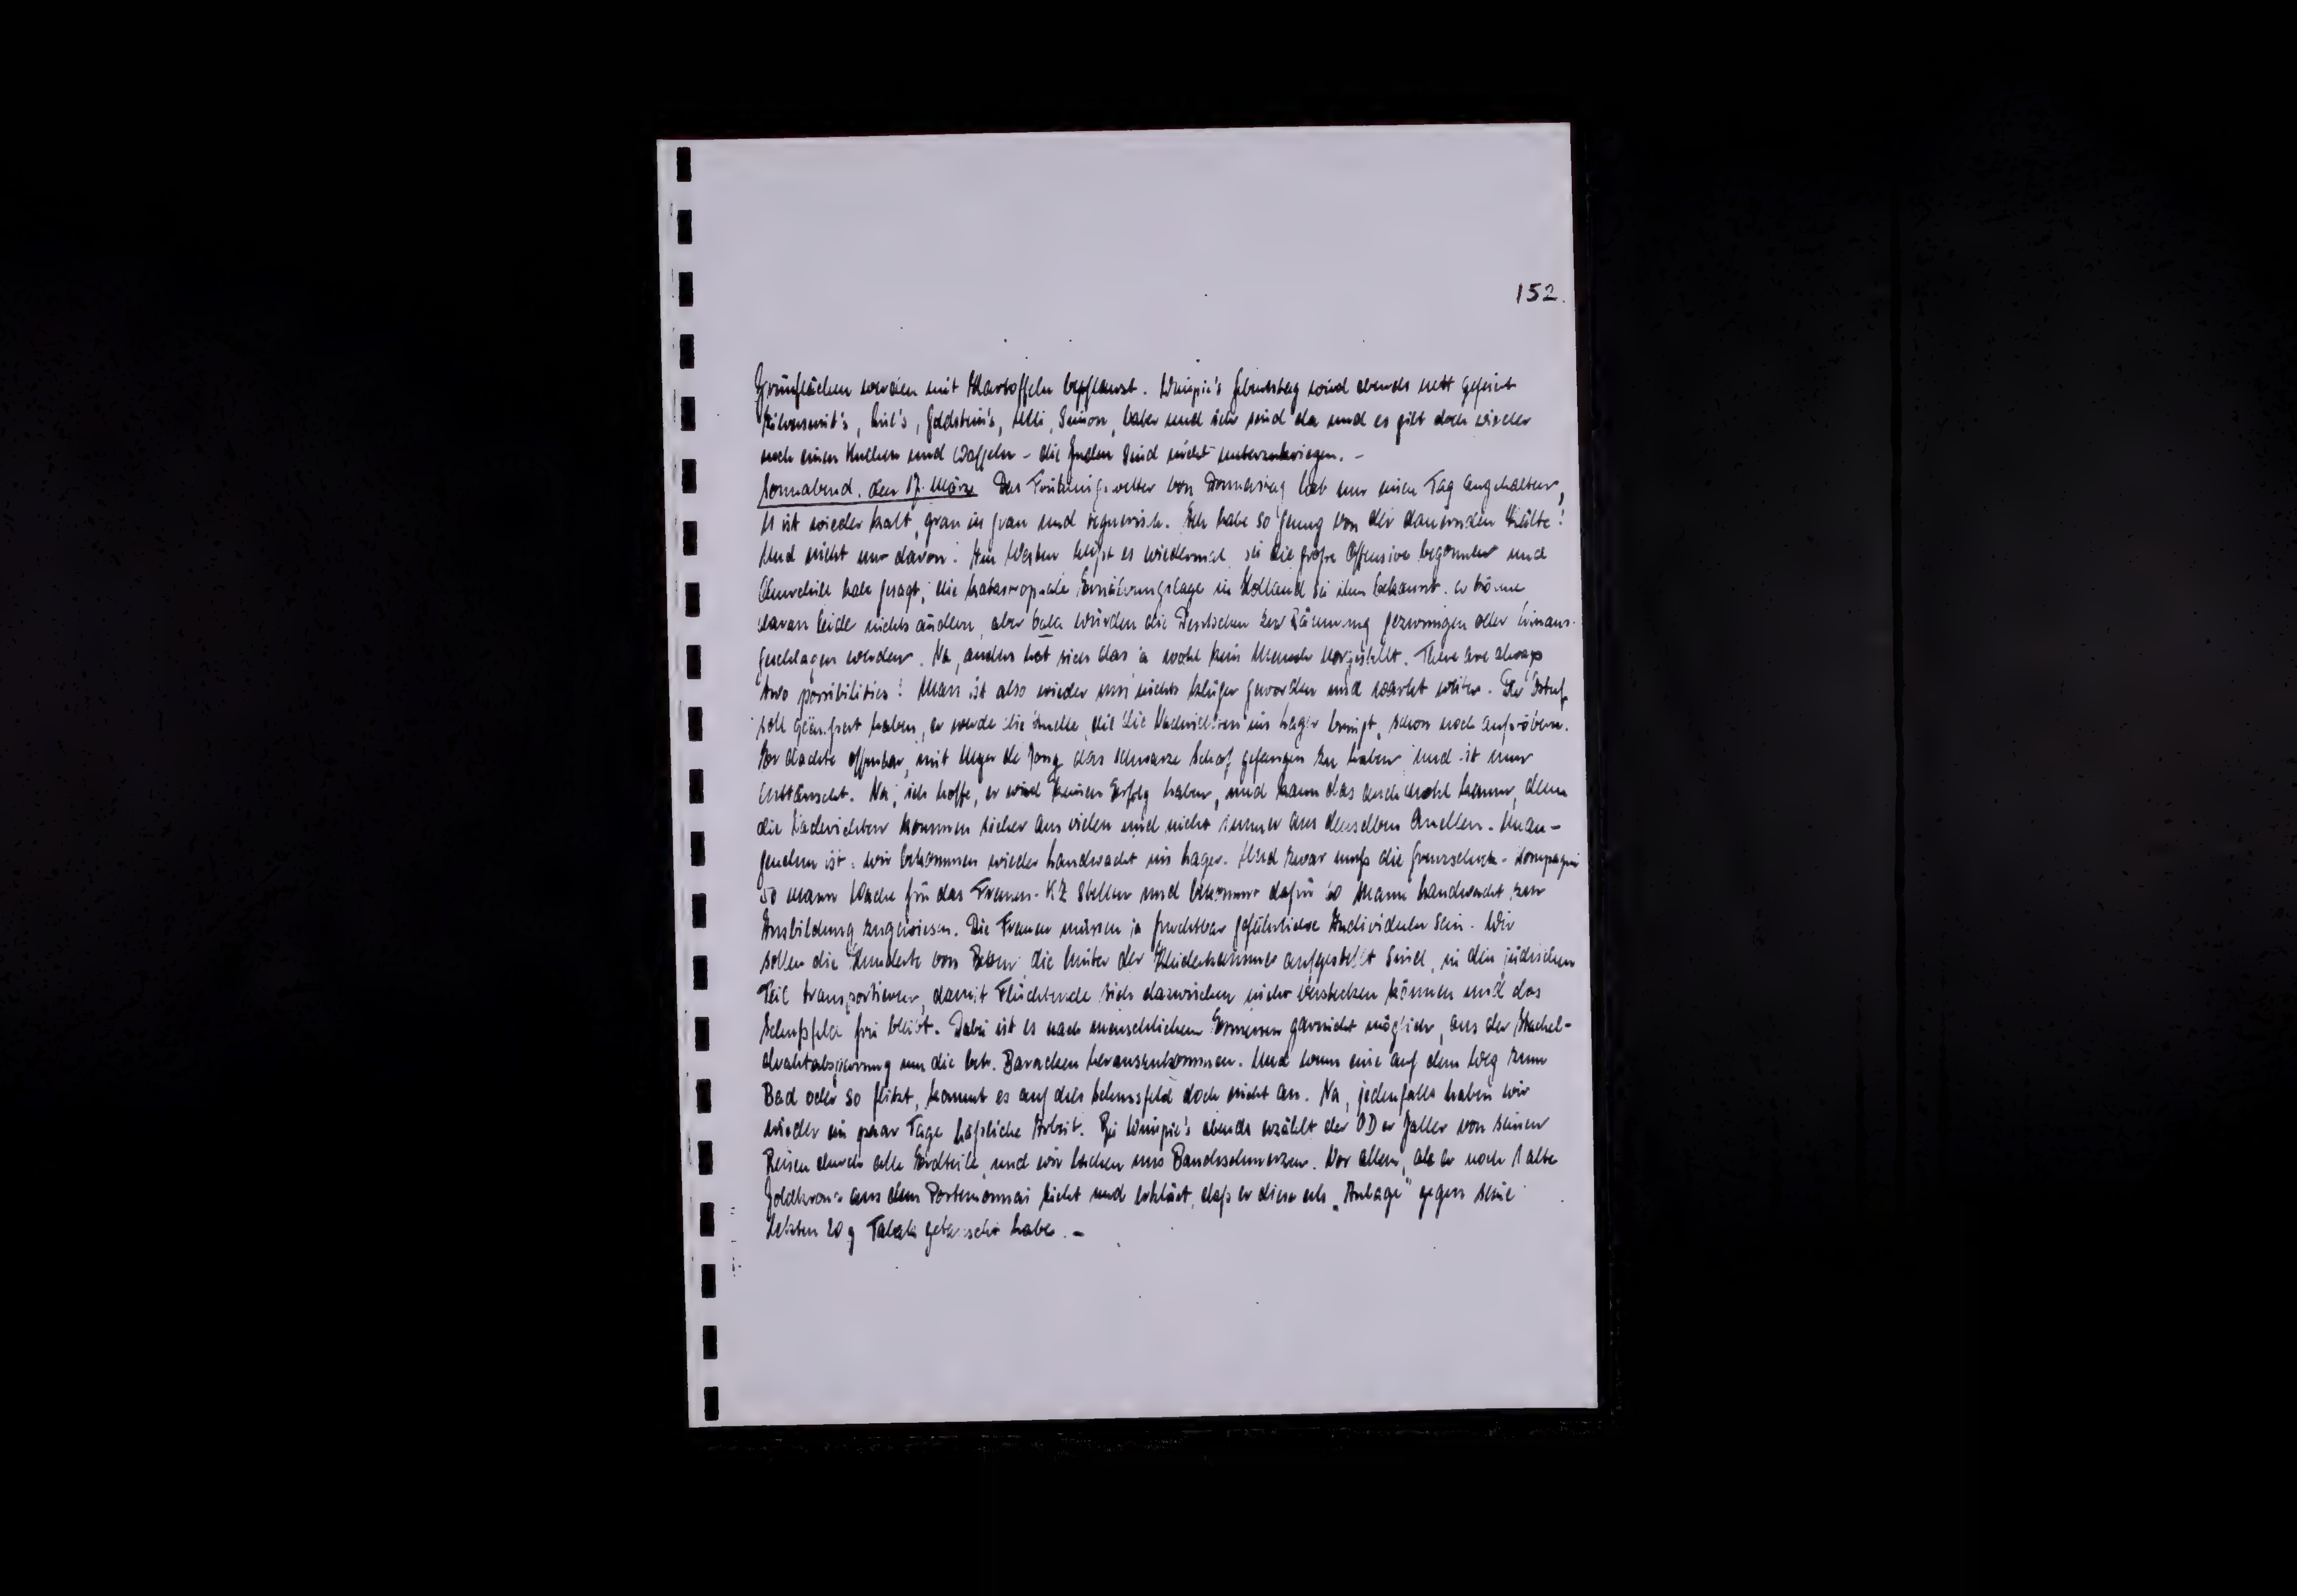 152.
Grünflächen werden mit Kartoffeln bepflanzt. Wimpie's Geburtstag wird abends nett gefeiert
Goldstein's, Simon, und ich sind da und es gibt doch wieder
noch einen Kuchen und Waffeln – die Juden sind nicht unterzukriegen. –
Sonnabend, den 17. März Das Frühlingswetter von Donnerstag hat nur einen Tag angehalten,
es ist wieder kalt, grau in grau und regnerisch. Ich habe so genug von der dauernden Kälte!
Und nicht nur davon! Im Westen heißt es wiedermal, sei die große Offensive begonnen und
Churchill habe gesagt, die katastrophale Ernährungslage in Holland sei ihm bekannt. er könne
daran leider nichts ändern, aber bald würden die Deutschen zur Räumung gezwungen oder hinaus-
geschlagen werden. Na, anders hat sich das ja wohl kein Mensch vorgestellt. There are always
two possibilities! Man ist also wieder um nichts klüger geworden und wartet weiter. Der
soll geäußert haben, er werde die Quelle, die die Nachrichten ins Lager bringt, schon noch aufstöbern.
Er dachte offenbar, mit Meyer de Jong das schwarze Schaf gefangen zu haben und ist nun
enttäuscht. Na, ich hoffe, er wird keinen Erfolg haben, und kann das auch wohl kaum, denn
die Nachrichten kommen sicher aus vielen und nicht immer aus denselben Quellen. Unan-
genehm ist: wir bekommen wieder Landwacht ins Lager. Und zwar muß die Grenzschutz-Kompagnie
50 Mann Wache für das Frauen-KZ stellen und bekommt dafür 60 Mann Landwacht zur
Ausbildung zugewiesen. Die Frauen müssen ja furchtbar gefährliche Individuen sein. Wir
sollen die Hunderte von die hinter der Kleiderkammer aufgestellt sind, in den jüdischen
Teil transportieren, damit Flüchtende sich dazwischen nicht verstecken können und das
Schußfeld frei bleibt. Dabei ist es nach menschlichem Ermessen garnicht möglich, aus der Stachel-
drahtabsperrung um die betr. Baracken herauszukommen. Und wenn eine auf dem Weg zum
Bad oder so flitzt, kommt es auf dies Schussfeld doch nicht an. Na, jedenfalls haben wir
wieder ein paar Tage häßliche Arbeit. Bei Wimpie's abends erzählt der ODer Galler von seinen
Reisen durch alle Erdteile, und wir lachen uns Bauchschmerzen. Vor allem, als er noch 1 alte
Goldkrone aus dem Portemonnai zieht und erklärt, daß er diese als „Anlage" gegen seine
letzten 20 g Tabak getauscht habe. –